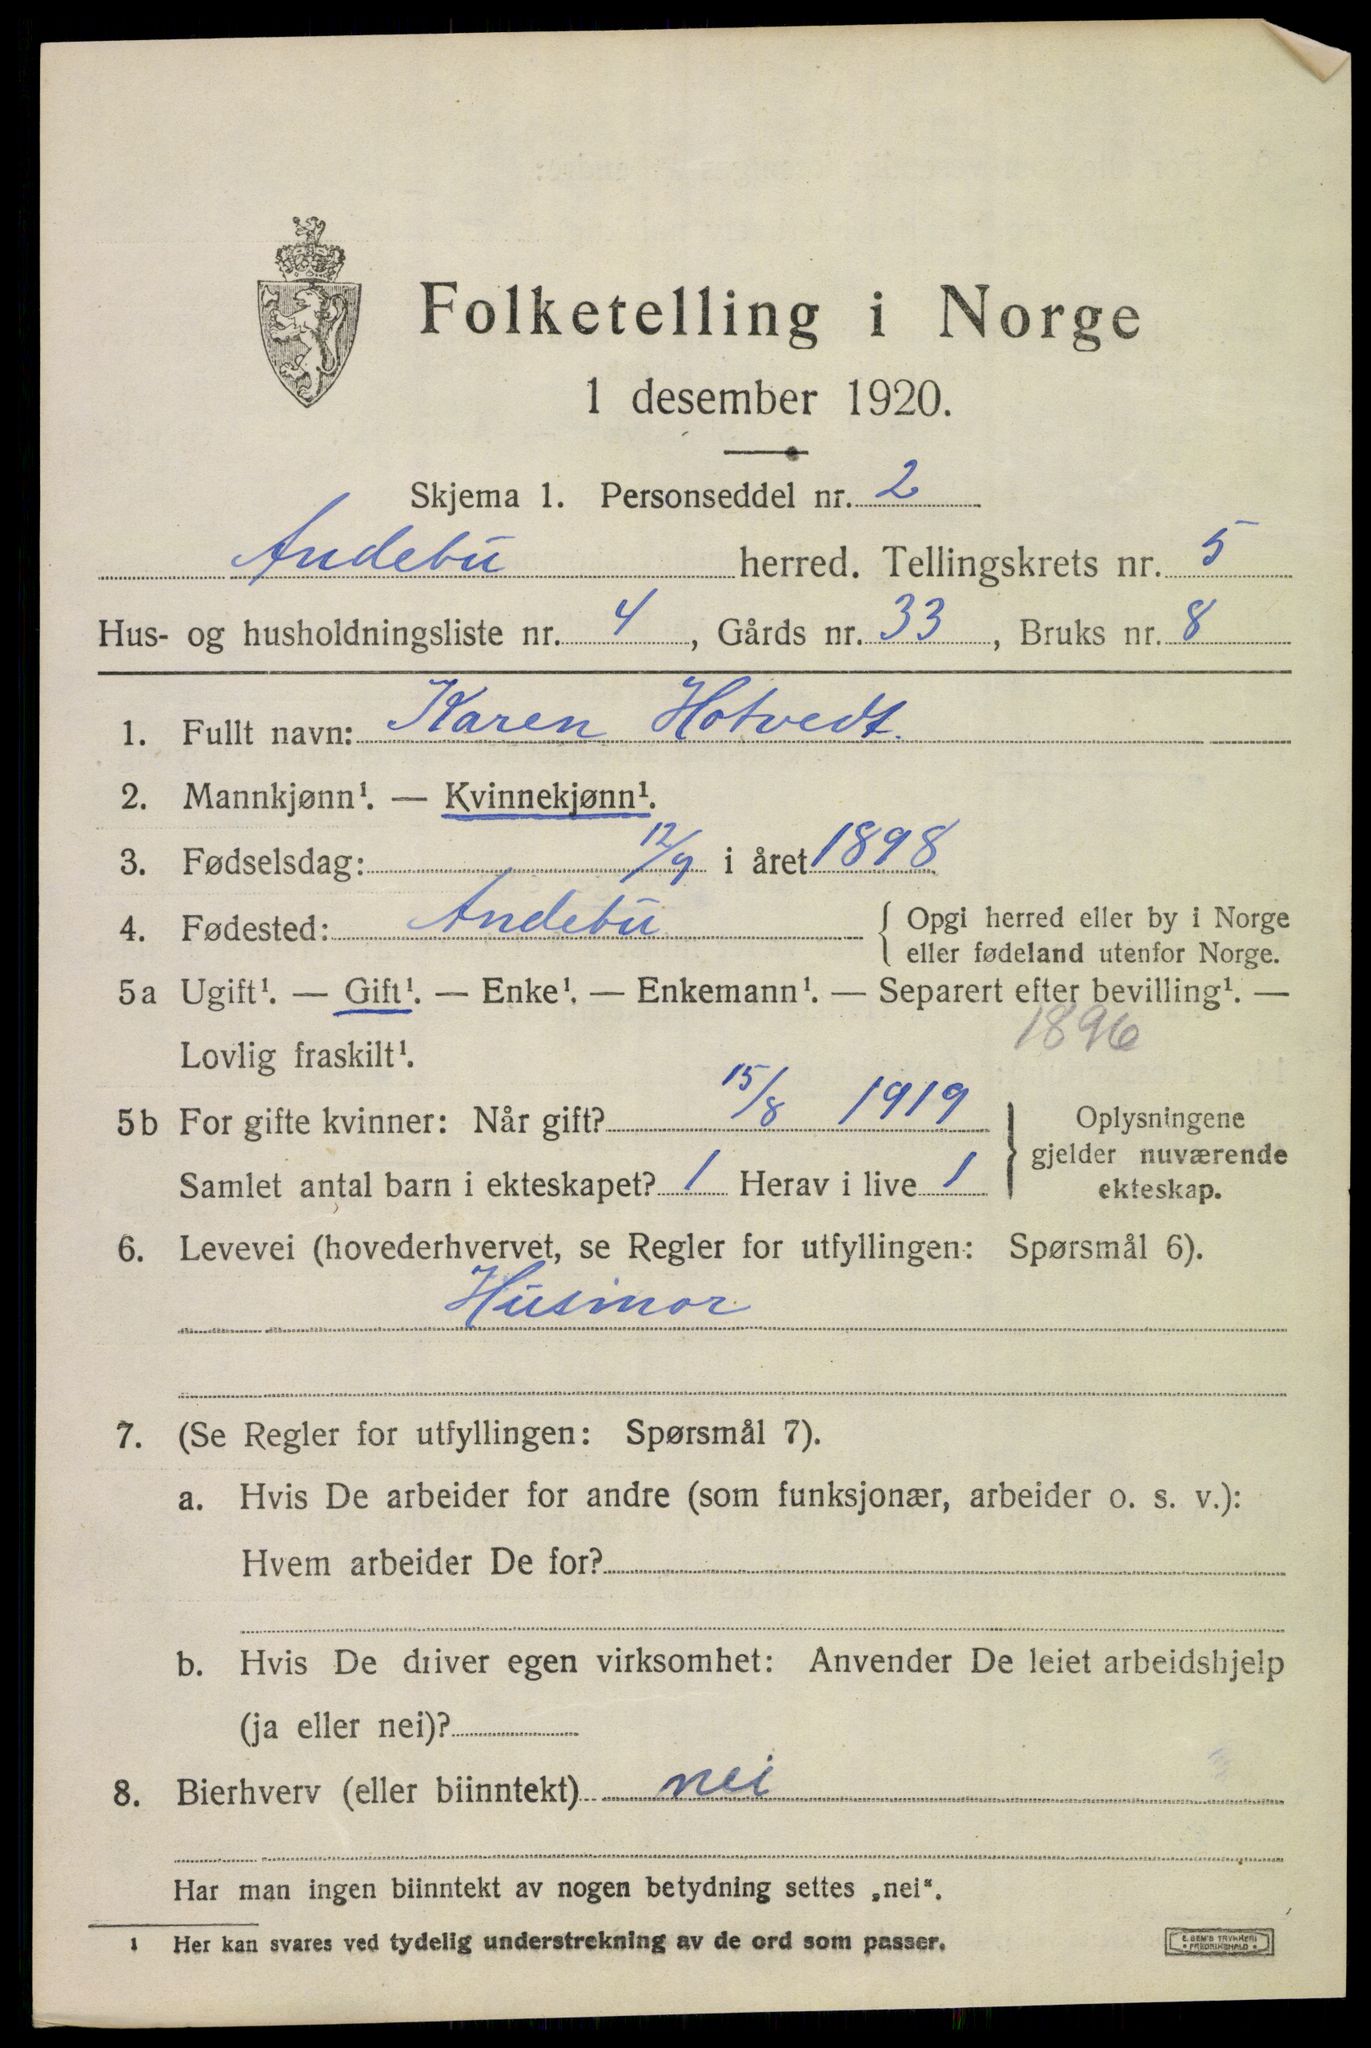 Folketelling i Norge
1 desember 1920.
Skjema 1. Personseddel nr. 2
Andebu herred. Tellingskrets nr. 5
Hus- og husholdningsliste nr. 4, Gårds nr. 33, Bruks nr. 8
1. Fullt navn: Karen Hotvedt.
2. Mannkjønn¹. — Kvinnekjønn¹.
3. Fødselsdag: 12/9 i året 1898
4. Fødested: Andebu { Opgi herred eller by i Norge
eller fødeland utenfor Norge.
5a Ugift¹. — Gift¹. — Enke¹. — Enkemann¹. — Separert efter bevilling¹. —
Lovlig fraskilt¹. 1896
5b For gifte kvinner: Når gift? 15/8 1919
Samlet antal barn i ekteskapet? 1 Herav i live 1
} Oplysningene
gjelder nuværende
ekteskap.
6. Levevei (hovederhvervet, se Regler for utfyllingen: Spørsmål 6).
Husmor
7. (Se Regler for utfyllingen: Spørsmål 7).
a. Hvis De arbeider for andre (som funksjonær, arbeider o. s. v.):
Hvem arbeider De for?
b. Hvis De driver egen virksomhet: Anvender De leiet arbeidshjelp
(ja eller nei)?
8. Bierhverv (eller biinntekt) nei
Har man ingen biinntekt av nogen betydning settes „nei“.
¹ Her kan svares ved tydelig understrekning av de ord som passer.
E. SEM'S TRYKKERI
• FREDRIKSHALD •